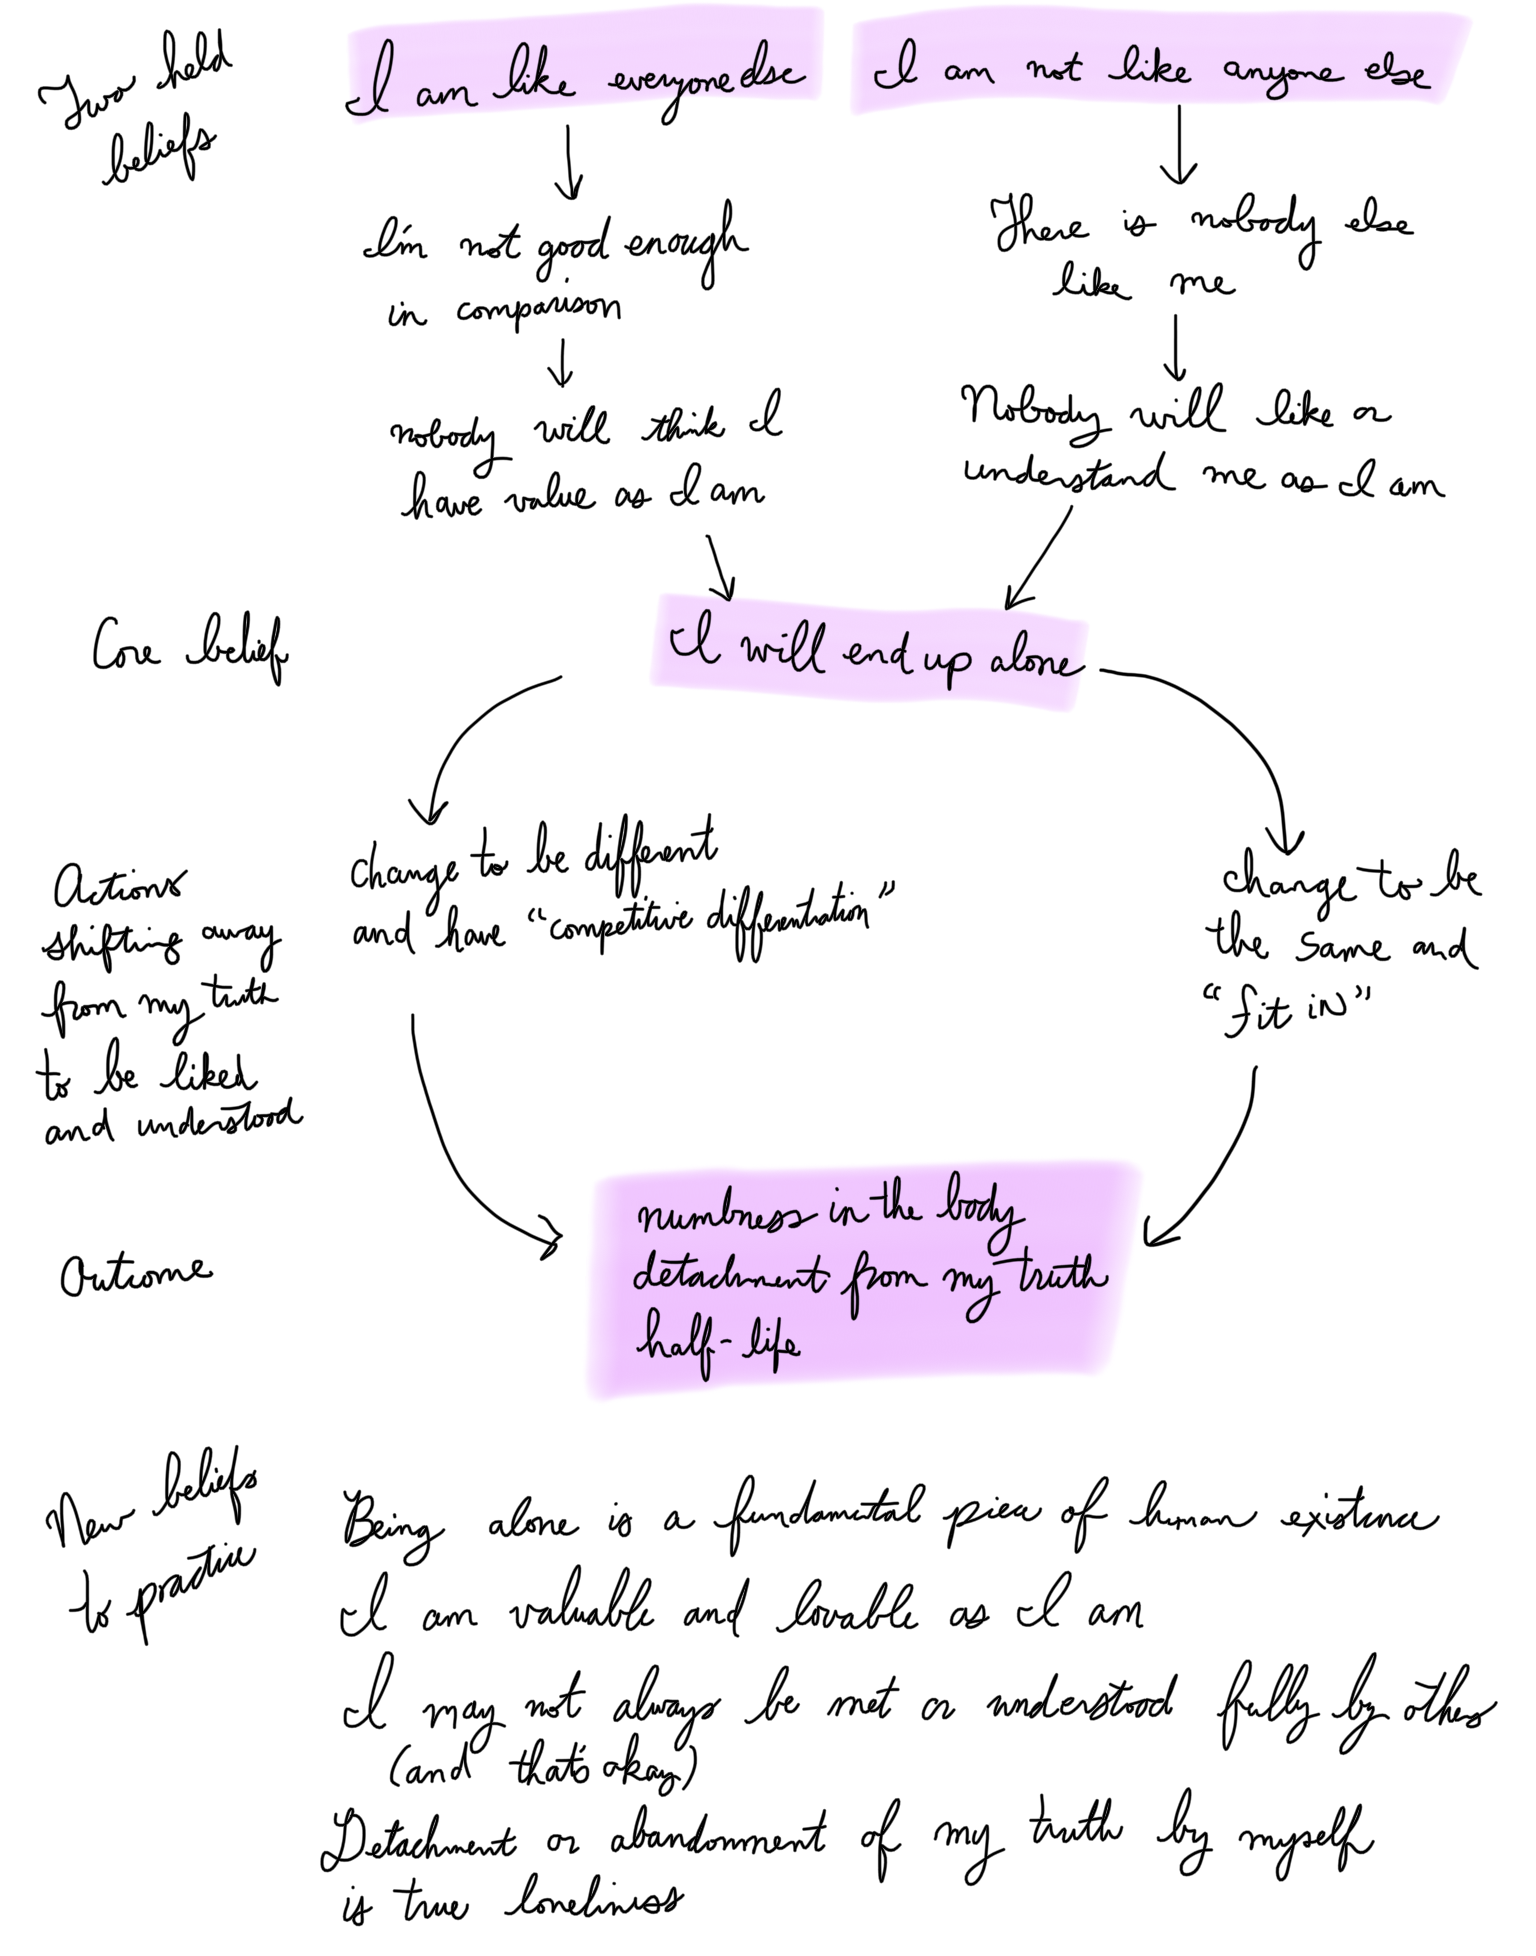 Two held
beliefs
I am like everyone else
I'm not good enough
in comparison
nobody will think I
have value as I am
I am not like anyone else
There is nobody else
like me
Nobody will like or
understand me as I am
Core belief
I will end up alone
Actions
shifting away
from my truth
to be liked
and understood
change to be different
and have “competitive differentiation”
change to be
the same and
“fit in”
Outcome
numbness in the body
detachment from my truth
half-life
New beliefs
to practice
Being alone is a fundamental piece of human existence
I am valuable and lovable as I am
I may not always be met or understood fully by others
(and that's okay)
Detachment or abandonment of my truth by myself
is true loneliness